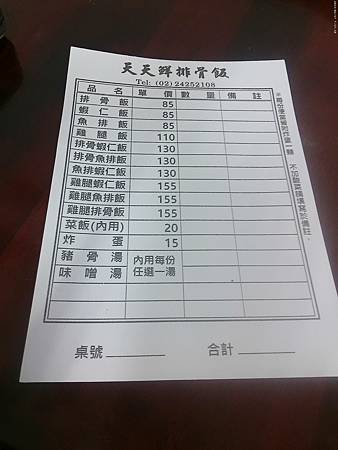 天天鮮排骨飯
Tel: (02) 24252108
品名 單價 數量 備註
排骨飯 85
蝦仁飯 85
魚排飯 85
雞腿飯 110
排骨蝦仁飯 130
排骨魚排飯 130
魚排蝦仁飯 130
雞腿蝦仁飯 155
雞腿魚排飯 155
雞腿排骨飯 155
菜飯(內用) 20
炸蛋 15
豬骨湯 內用每份
味噌湯 任選一湯
桌號
合計
不加酸菜請填寫於備註